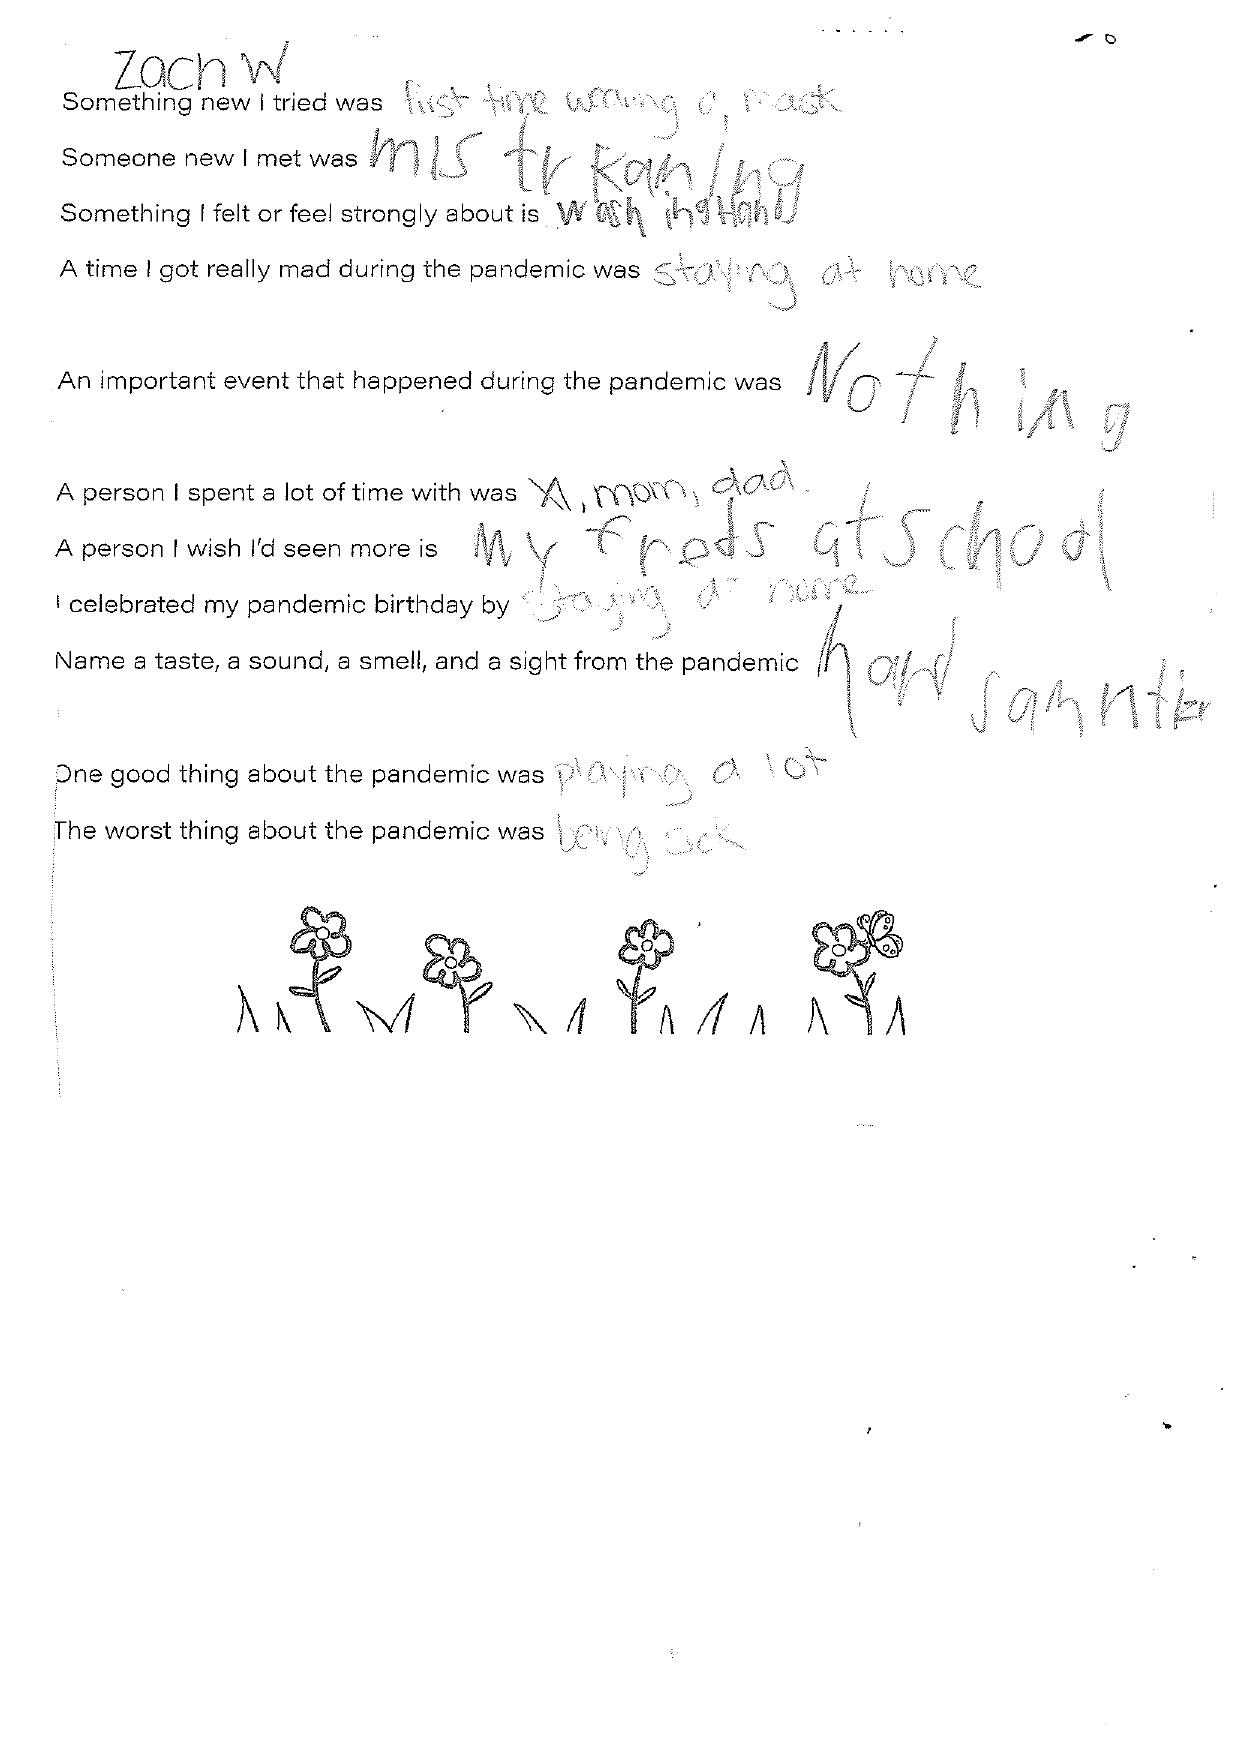 Zach W
Something new I tried was first time wearing a mask
Someone new I met was mis tr Kaning
Something I felt or feel strongly about is wash ing Hand
A time I got really mad during the pandemic was staying at home
An important event that happened during the pandemic was Nothing
A person I spent a lot of time with was , mom, dad.
A person I wish I'd seen more is My freds at school
I celebrated my pandemic birthday by staying at home
Name a taste, a sound, a smell, and a sight from the pandemic hand
One good thing about the pandemic was playing a lot
The worst thing about the pandemic was being sick